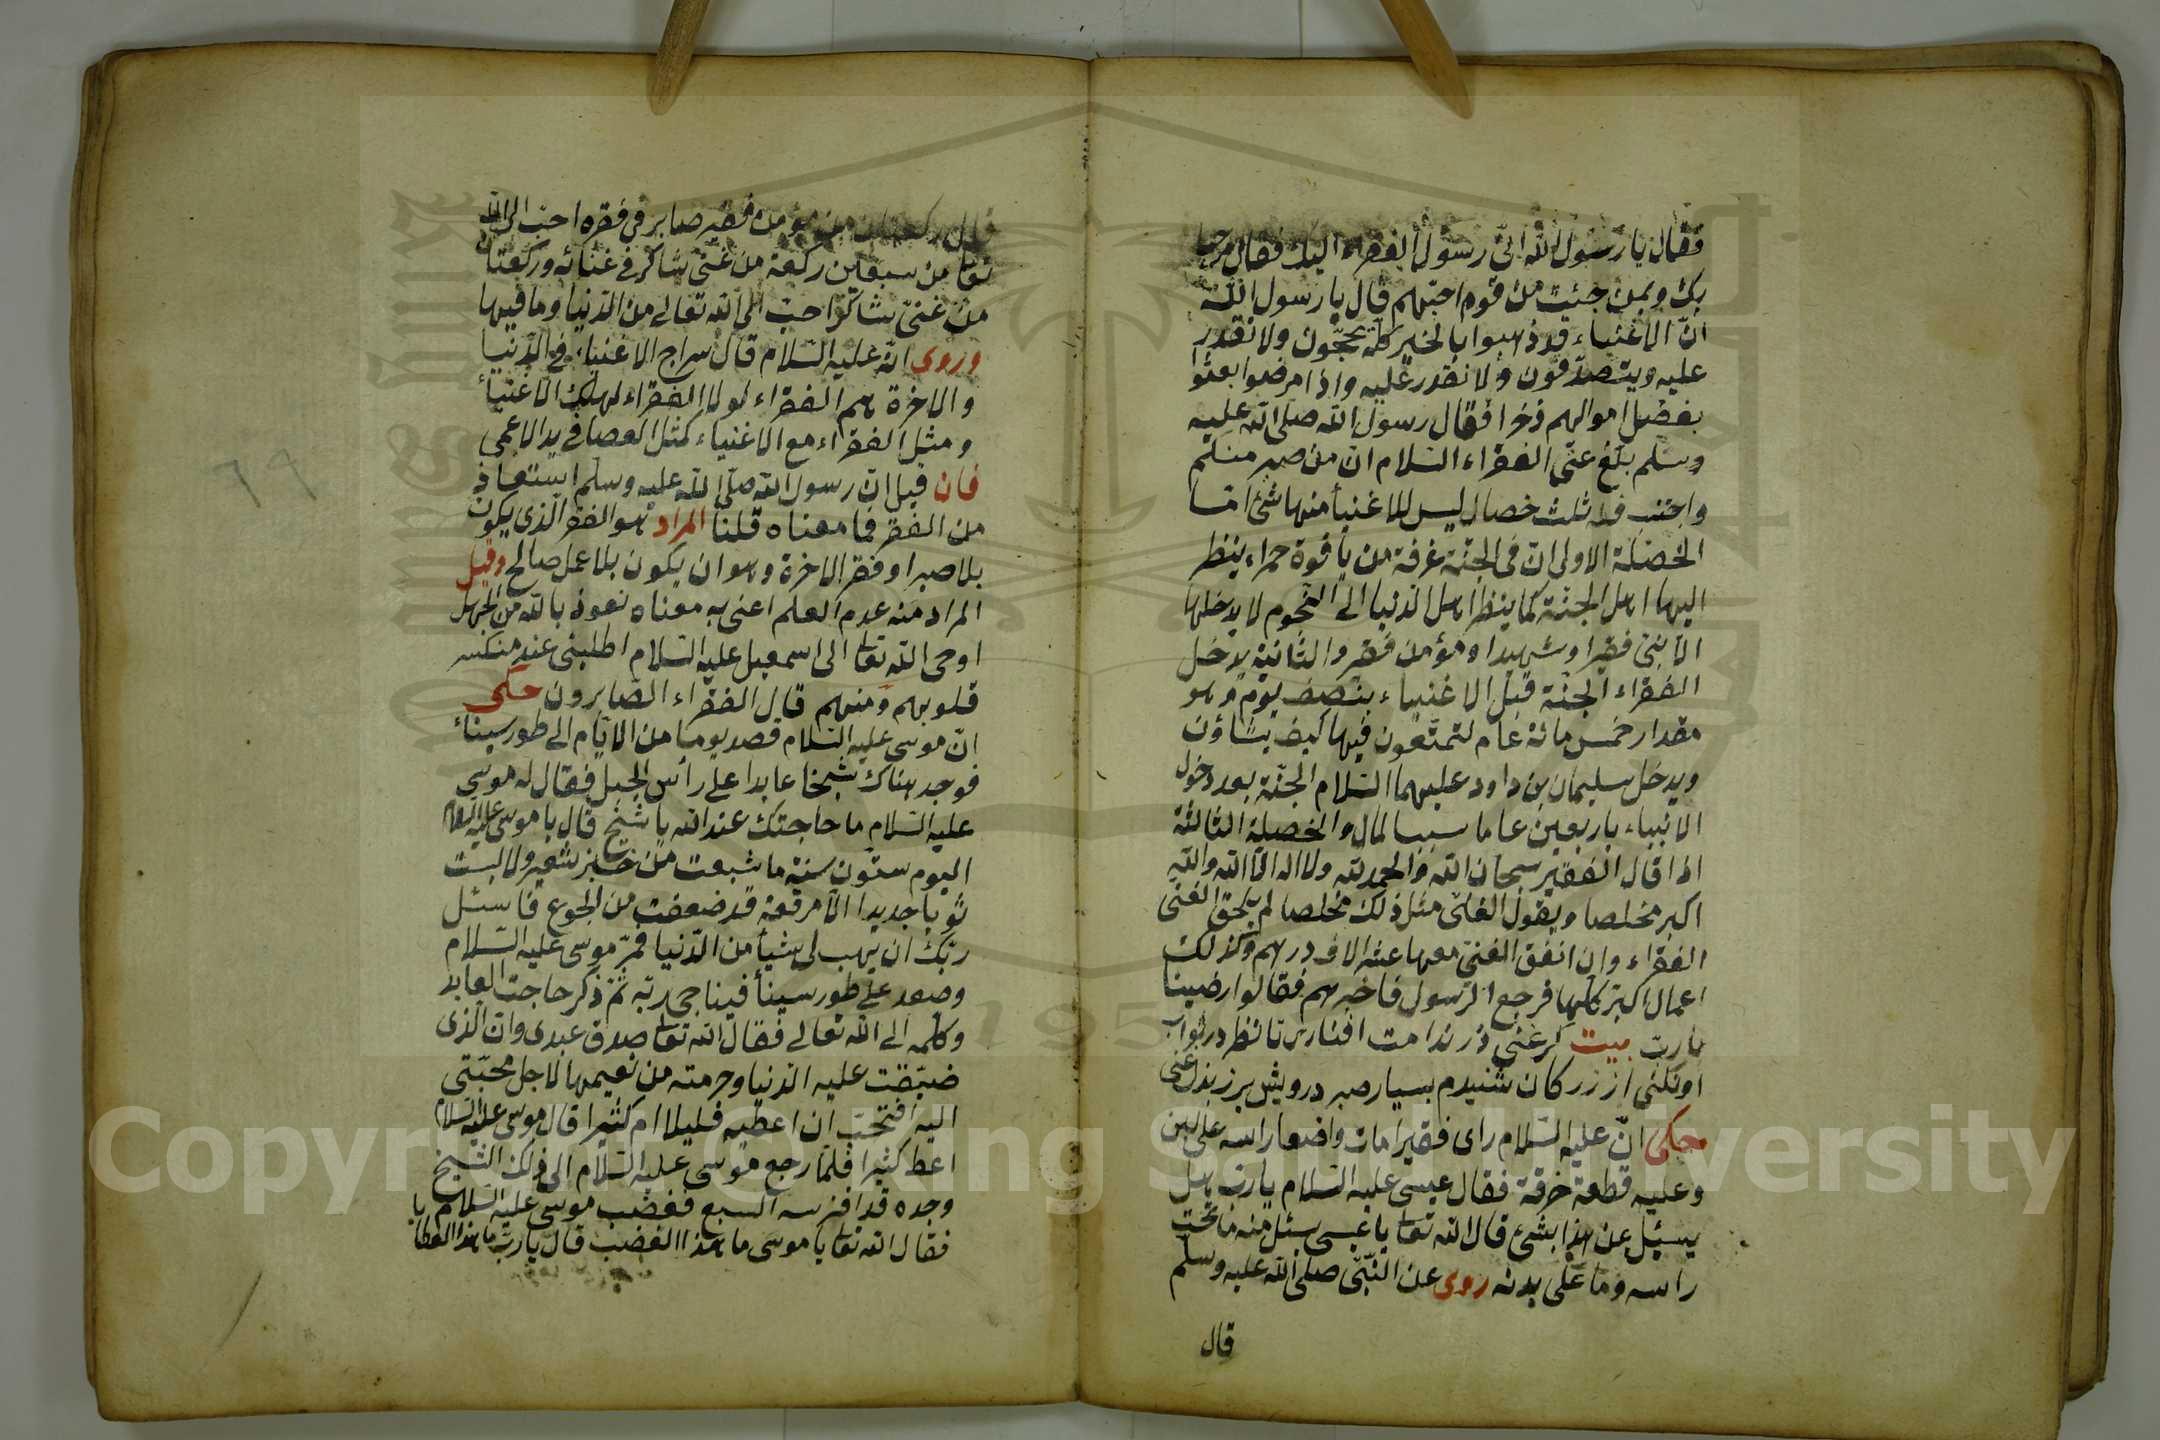 فقال يا رسول الله انى رسول الفقراء اليك فقال مرحبا
بك وبمن جئت من قوم احبهم قال يا رسول الله
ان الاغنياء قد ذهبوا بالخير كله يحجون ولا نقدر
عليه ويتصدقون ولا نقدر عليه واذا مرضوا بعثوا
بفضل اموالهم ذخرا فقال رسول الله صلى الله عليه
وسلم بلغ عنى الفقراء السلام ان من صبر منكم
واحتسب فله ثلث خصال ليس للاغنيأ منها شئ اما
الخصلة الاولى ان فى الجنة غرفة من ياقوة حمراء ينظر
اليها اهل الجنة كما ينظر اهل الدنيا الى النجوم لا يدخلها
الا نبى فقير او شهيد او مؤمن فقير والثانية يدخل
الفقراء الجنة قبل الاغنياء بنصف يوم وهو
مقدار خمس مائة عام لتمتعون فيها كيف يشاؤن
ويدخل سليمان بن داود عليهما السلام الجنة بعد دخول
الانبياء باربعين عاما سبب المال والخصلة الثالثة
اذا قال الفقير سبحان الله والحمد لله ولا اله الا الله والله
اكبر مخلصا ويقول الغنى مثل ذلك مخلصا لم يلحق الغنى
الفقراء وان انفق الغنى معها عشه الاف درهم وكذلك
اعمال البر كلها فرجع الرسول فاخبرهم فقالوا رضينا
يا رب بيت كر غنى ذر ندامت افتارى تا نظر در ثواب
او نكنى از زر كان شنيدم بسيار صبر درويش برز بذل غنى
حكى ان عليه السلام راى فقيرا مات واضعا راسه على لبن
وعليه قطعة خرقة فقال عيسى عليه السلام يا رب هل
يسئل عن هذا بشئ قال الله تعا يا عيسى سئل منه ما تحت
راسه وما على بدنه روى عن النبى صلى الله عليه وسلم
قال
قال ركعتان من مؤمن فقير صابر فى فقره احب الى الله
تعا من سبعين ركعة من غنى شاكر فى غنائه وركعتان
من غنى شاكر احب الى الله تعالى من الدنيا وما فيها
وروى انه عليه السلام قال سراج الاغنياء فى الدنيا
والاخرة هم الفقراء لولا الفقراء لهلك الاغنيأ
ومثل الفقراء مع الاغنياء كمثل العصا فى يد الاعمى
فان قيل ان رسول الله صلى الله عليه وسلم استعاذ
من الفقر فما معناه قلنا المراد هو الفقر الذى يكون
بلا صبر او فقر الاخرة وهو ان يكون بلا عمل صالح وقيل
المراد منه عدم العلم اعنى به معناه نعوذ بالله من الجهل
اوحى الله تعا الى اسمعيل عليه السلام اطلبنى عند منكسر
قلوبهم ومنهم قال الفقراء الصابرون حكى
ان موسى عليه السلام قصد يوما من الايام الى طور سيناء
فوجد هناك شيخا عابدا على رأس الجبل فقال له موسى
عليه السلام ما حاجتك عند الله يا شيخ قال يا موسى عليه السلام
اليوم ستون سنة ما شبعت من خبز شعير ولا لبست
ثوبا جديدا الا مرقعة قد ضعفت من الجوع فاسئل
ربك ان يهب لى شيأ من الدنيا فمر موسى عليه السلام
وصعد على طور سينأ فيناجى ربه ثم ذكر حاجت العابد
وكلمه الى الله تعالى فقال الله تعا صدق عبدى وان الذى
ضيقت عليه الدنيا وحرمته من نعيمها لاجل محبتى
اليه افتحب ان اعطيه قليلا ام كثيرا قال موسى عليه السلام
اعط كثيرا فلما رجع موسى عليه السلام الى ذلك الشيخ
وجده قد افترسه السبع فغضب موسى عليه السلام
فقال الله تعا يا موسى ما هذا الغضب قال يا رب ما هذا العطا
٦٩
Copyright © King Saud University